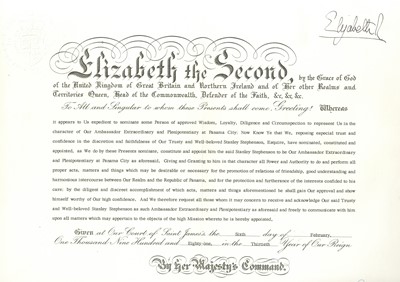 Elizabeth R
Elizabeth the Second, by the Grace of God
of the United Kingdom of Great Britain and Northern Ireland and of Her other Realms and
Territories Queen, Head of the Commonwealth, Defender of the Faith, &c, &c, &c.
To All and Singular to whom these Presents shall come, Greeting! Whereas
it appears to Us expedient to nominate some Person of approved Wisdom, Loyalty, Diligence and Circumspection to represent Us in the
character of Our Ambassador Extraordinary and Plenipotentiary at Panama City: Now Know Ye that We, reposing especial trust and
confidence in the discretion and faithfulness of Our Trusty and Well-beloved Stanley Stephenson, Esquire, have nominated, constituted and
appointed, as We do by these Presents nominate, constitute and appoint him the said Stanley Stephenson to be Our Ambassador Extraordinary
and Plenipotentiary at Panama City as aforesaid. Giving and Granting to him in that character all Power and Authority to do and perform all
proper acts, matters and things which may be desirable or necessary for the promotion of relations of friendship, good understanding and
harmonious intercourse between Our Realm and the Republic of Panama, and for the protection and furtherance of the interests confided to his
care; by the diligent and discreet accomplishment of which acts, matters and things aforementioned he shall gain Our approval and show
himself worthy of Our high confidence. And We therefore request all those whom it may concern to receive and acknowledge Our said Trusty
and Well-beloved Stanley Stephenson as such Ambassador Extraordinary and Plenipotentiary as aforesaid and freely to communicate with him
upon all matters which may appertain to the objects of the high Mission whereto he is hereby appointed.
Given at Our Court of Saint James's the Sixth day of February,
One Thousand Nine Hundred and Eighty-one, in the Thirtieth Year of Our Reign
By Her Majesty's Command.